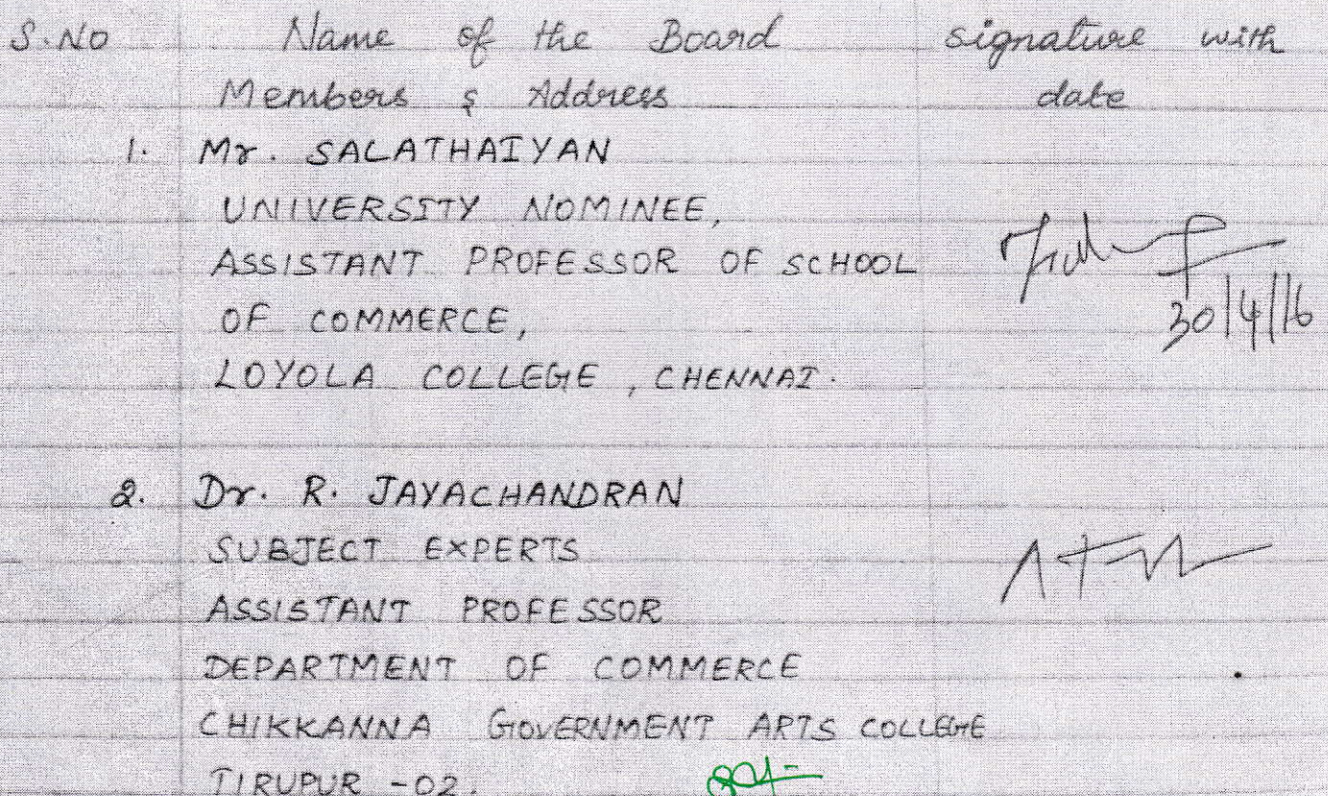 S.NO Name of the Board signature with
Members & Address date
1. Mr. SALATHAIYAN
UNIVERSITY NOMINEE,
ASSISTANT PROFESSOR OF SCHOOL
OF COMMERCE,
30/4/16
LOYOLA COLLEGE, CHENNAI.
2. Dr. R. JAYACHANDRAN
SUBJECT EXPERTS
ASSISTANT PROFESSOR
DEPARTMENT OF COMMERCE
CHIKKANNA GOVERNMENT ARTS COLLEGE
TIRUPUR -02.